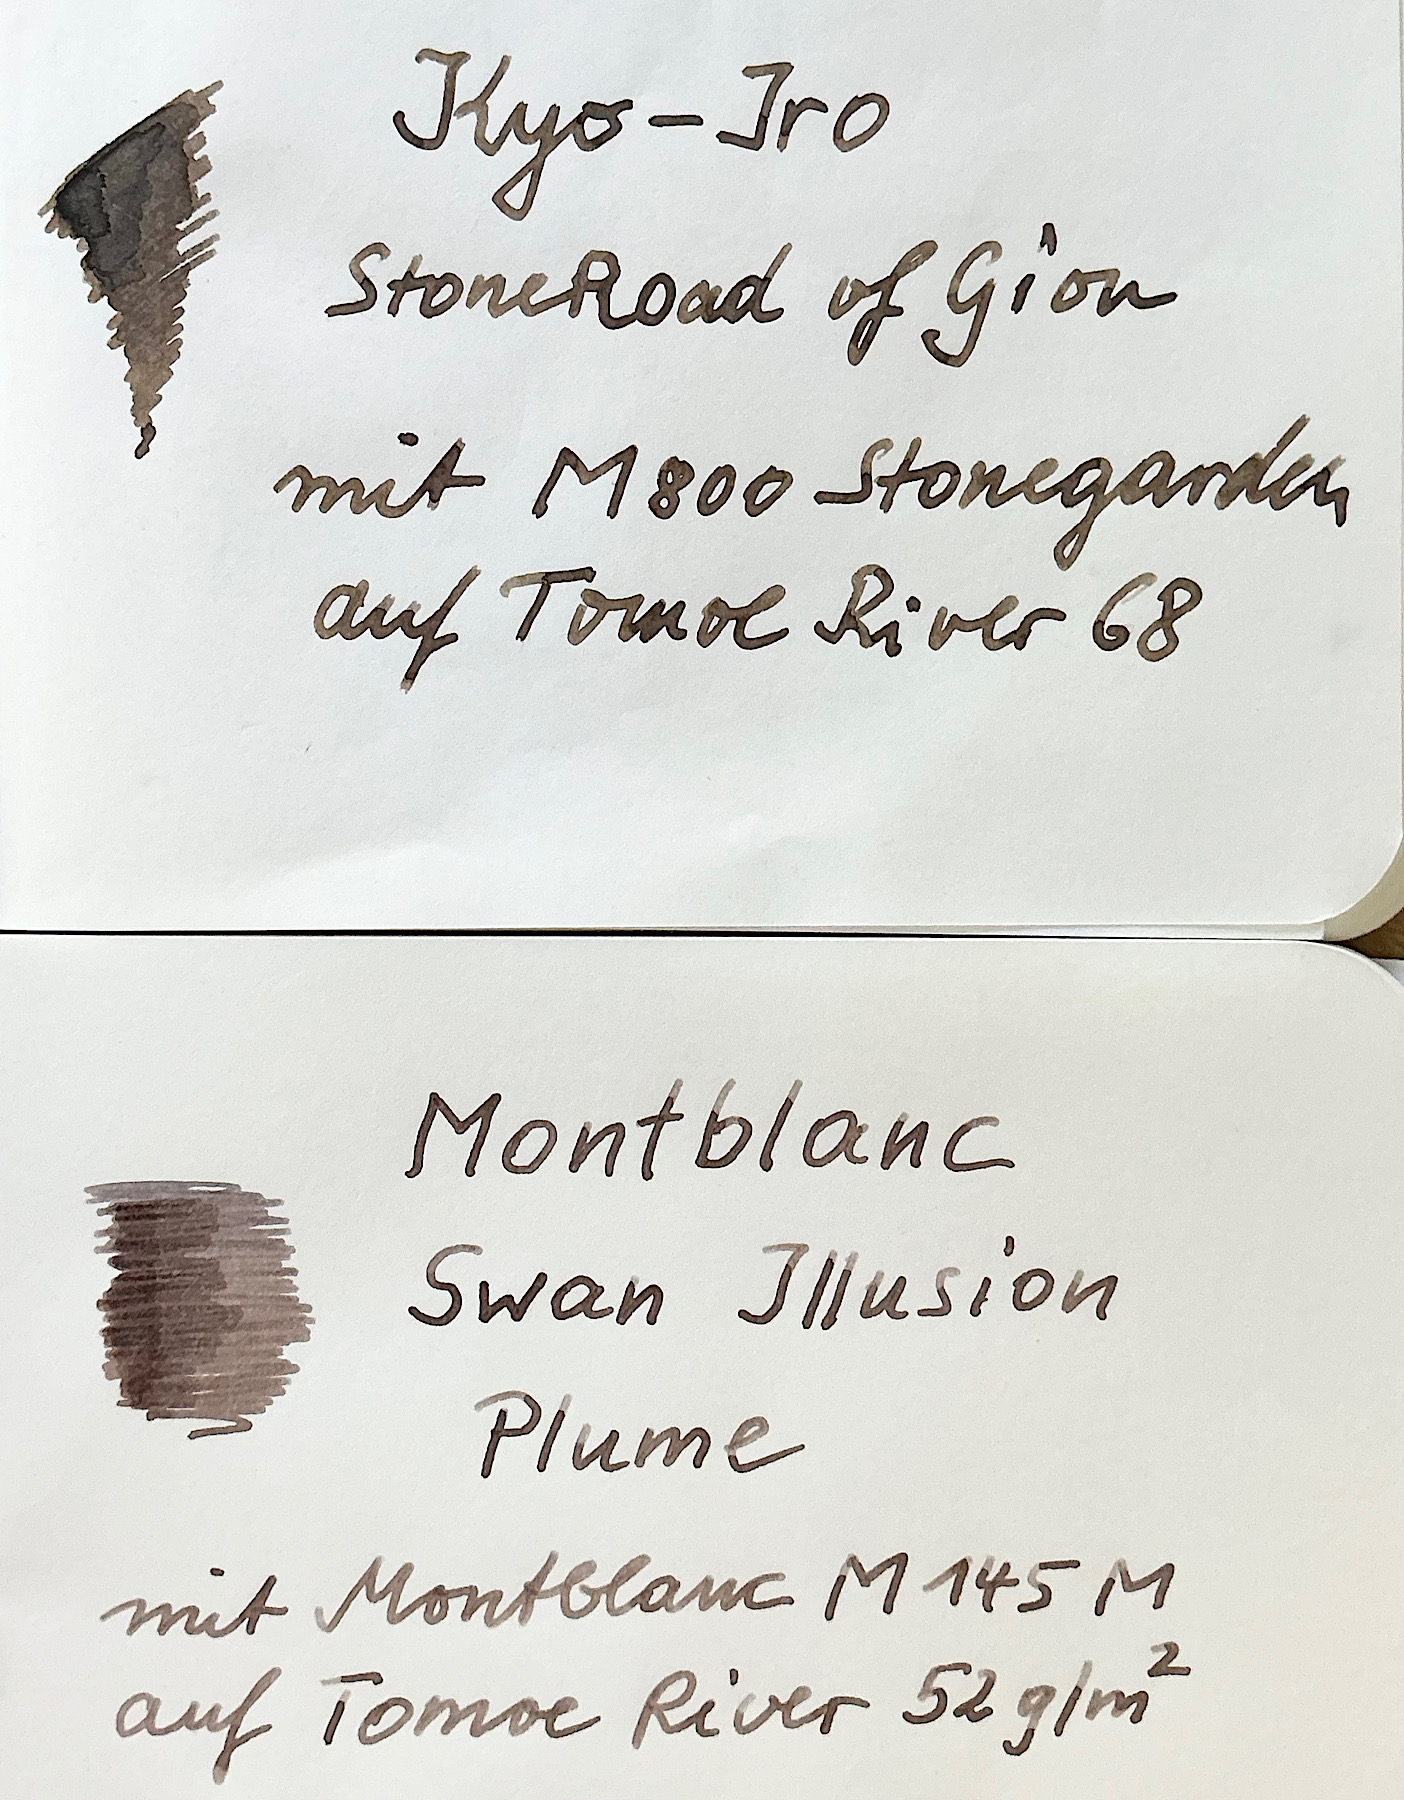 Kyo-Iro
StoneRoad of Gion
mit M800 Stonegarden
auf Tomoe River 68
Montblanc
Swan Illusion
Plume
mit Montblanc M 145 M
auf Tomoe River 52 g/m²